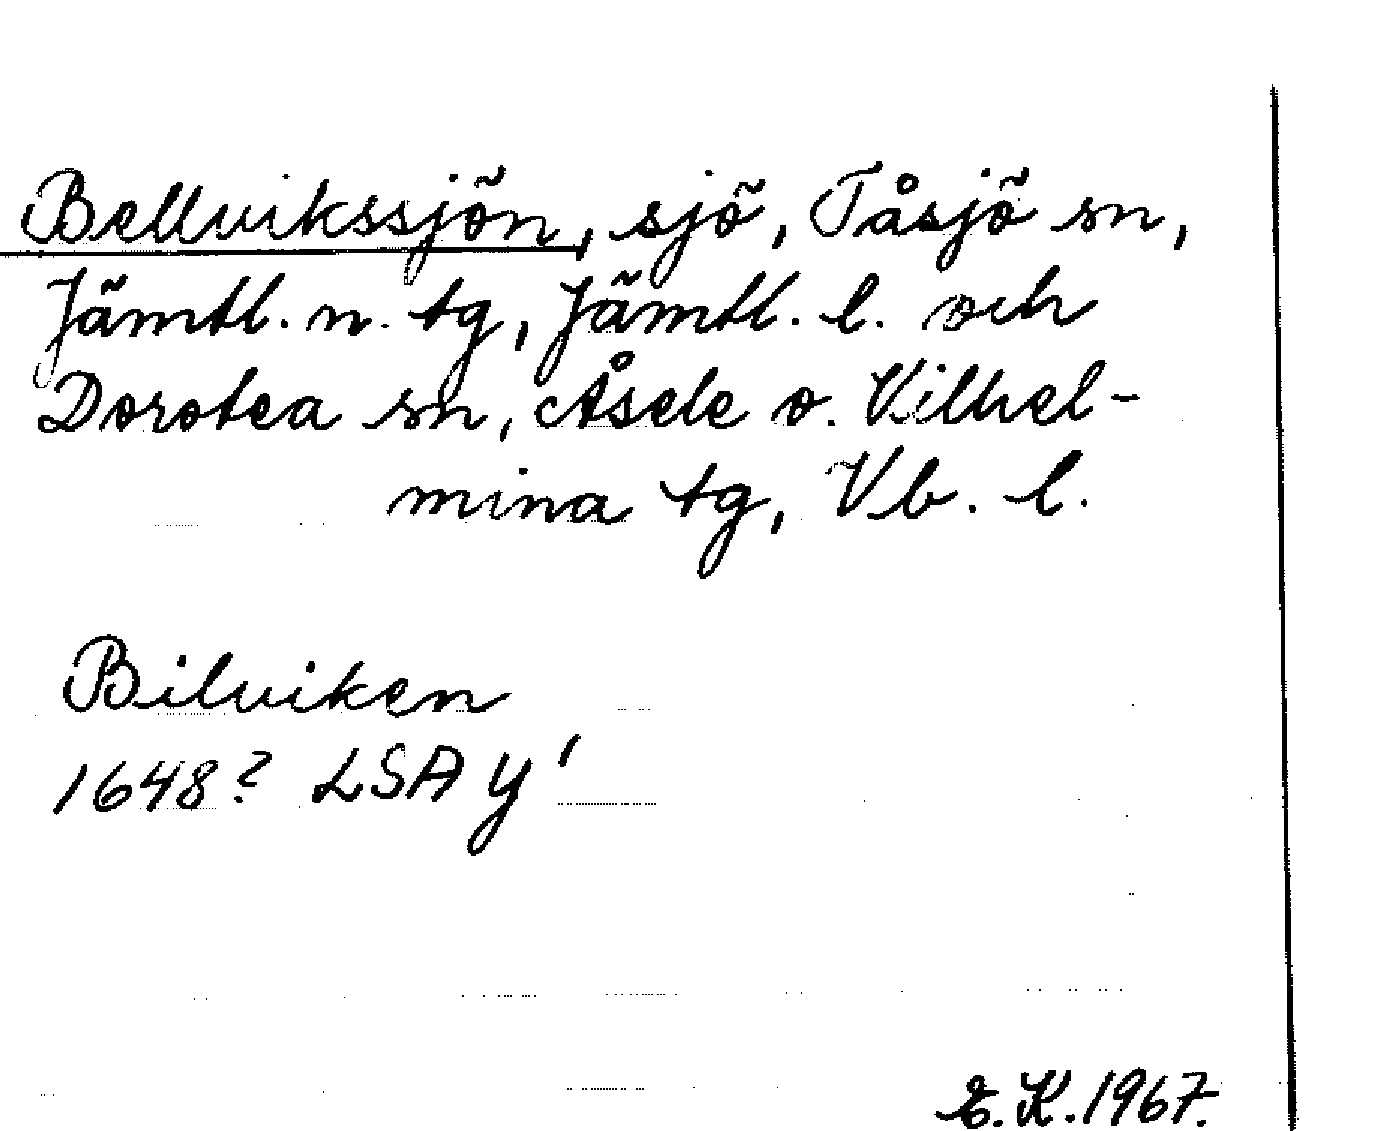 Bellvikssjön, sjö, Tåsjö sn,
Jämtl. n. tg, Jämtl. l. och
Dorotea sn, Åsele o. Vilhel-
mina tg, Vb. l.
Bilviken
1648? LSA y'
E.K.1967.